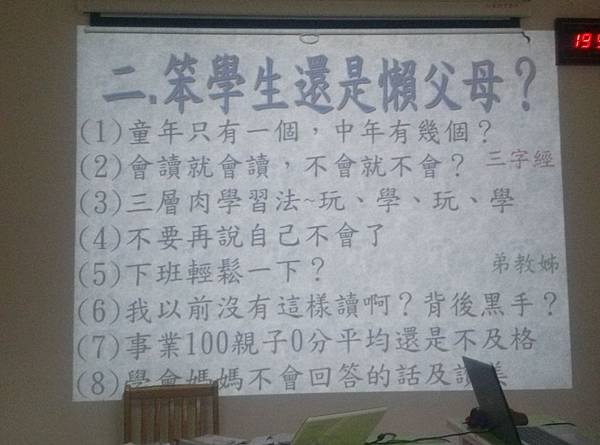 二.笨學生還是懶父母？
(1)童年只有一個，中年有幾個？
(2)會讀就會讀，不會就不會？ 三字經
(3)三層肉學習法~玩、學、玩、學
(4)不要再說自己不會了
(5)下班輕鬆一下？ 弟教姊
(6)我以前沒有這樣讀啊？背後黑手？
(7)事業100親子0分平均還是不及格
(8)學會媽媽不會回答的話及讚美